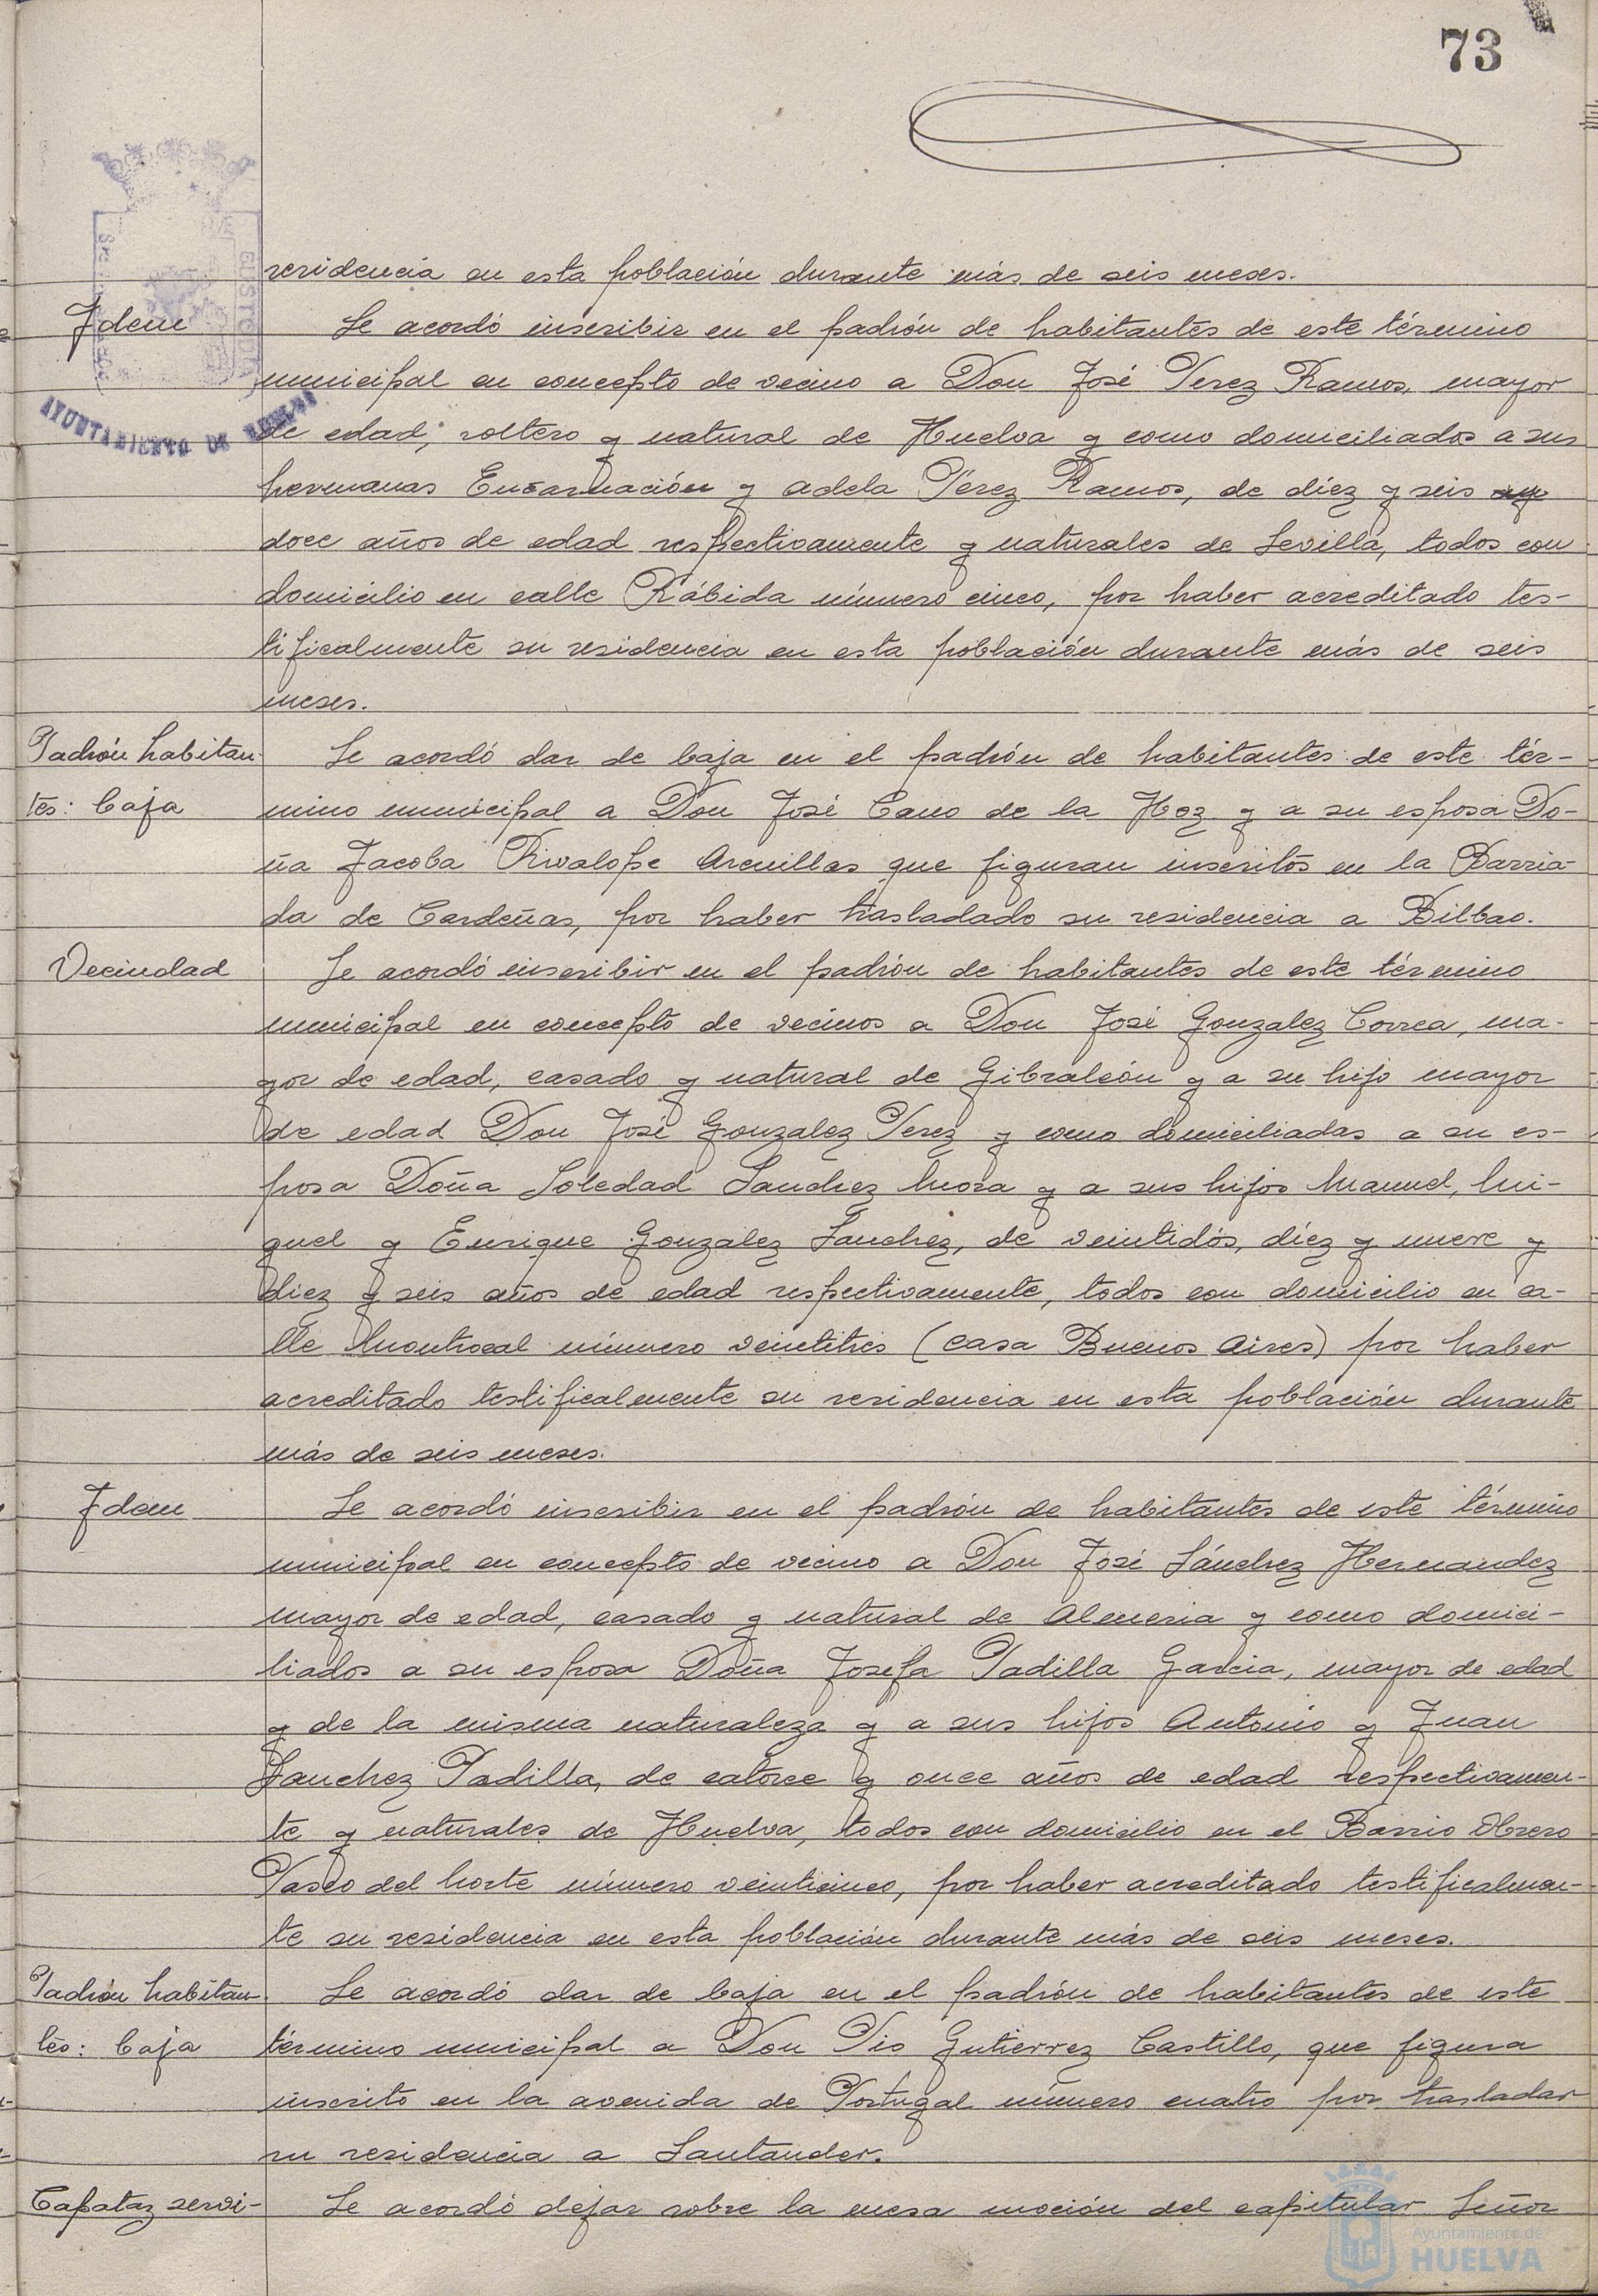 73
residencia en esta población durante más de seis meses.
Idem
Se acordó inscribir en el padrón de habitantes de este término
municipal en concepto de vecino a Don José Perez Ramos, mayor
AYUNTAMIENTO DE HUELVA
de edad, soltero y natural de Huelva y como domiciliados a sus
hermanas Encarnación y Adela Pérez Ramos, de diez y seis
doce años de edad respectivamente y naturales de Sevilla, todos con
domicilio en calle Rábida número cinco, por haber acreditado tes-
tificalmente su residencia en esta población durante más de seis
meses.
Padrón habitan-
tes: baja
Se acordó dar de baja en el padrón de habitantes de este tér-
mino municipal a Don José Cano de la Hoz y a su esposa Do-
ña Jacoba Rivalope Arenillas que figuran inscritos en la Barria-
da de Cardeñas, por haber trasladado su residencia a Bilbao.
Vecindad
Se acordó inscribir en el padrón de habitantes de este término
municipal en concepto de vecinos a Don José Gonzalez Correa, ma-
yor de edad, casado y natural de Gibraleón y a su hijo mayor
de edad Don José Gonzalez Perez y como domiciliadas a su es-
posa Doña Soledad Sanchez Mora y a sus hijos Manuel, Mi-
guel y Enrique Gonzalez Sanchez, de veintidós, diez y nueve y
diez y seis años de edad respectivamente, todos con domicilio en ca-
lle Montrocal número veintitrés (casa Buenos Aires) por haber
acreditado testificalmente su residencia en esta población durante
más de seis meses.
Idem
Se acordó inscribir en el padrón de habitantes de este término
municipal en concepto de vecino a Don José Sánchez Hernandez
mayor de edad, casado y natural de Almeria y como domici-
liados a su esposa Doña Josefa Padilla Garcia, mayor de edad
y de la misma naturaleza y a sus hijos Antonio y Juan
Sanchez Padilla, de catorce y once años de edad respectivamen-
te y naturales de Huelva, todos con domicilio en el Barrio Obrero
Paseo del Norte número veinticinco, por haber acreditado testificalmen-
te su residencia en esta población durante más de seis meses.
Padrón habitan-
tes: baja
Se acordó dar de baja en el padrón de habitantes de este
término municipal a Don Pio Gutierrez Castillo, que figura
inscrito en la avenida de Portugal número cuatro por trasladar
su residencia a Santander.
Capataz servi-
Se acordó dejar sobre la mesa moción del capitular Señor
Ayuntamiento de
HUELVA